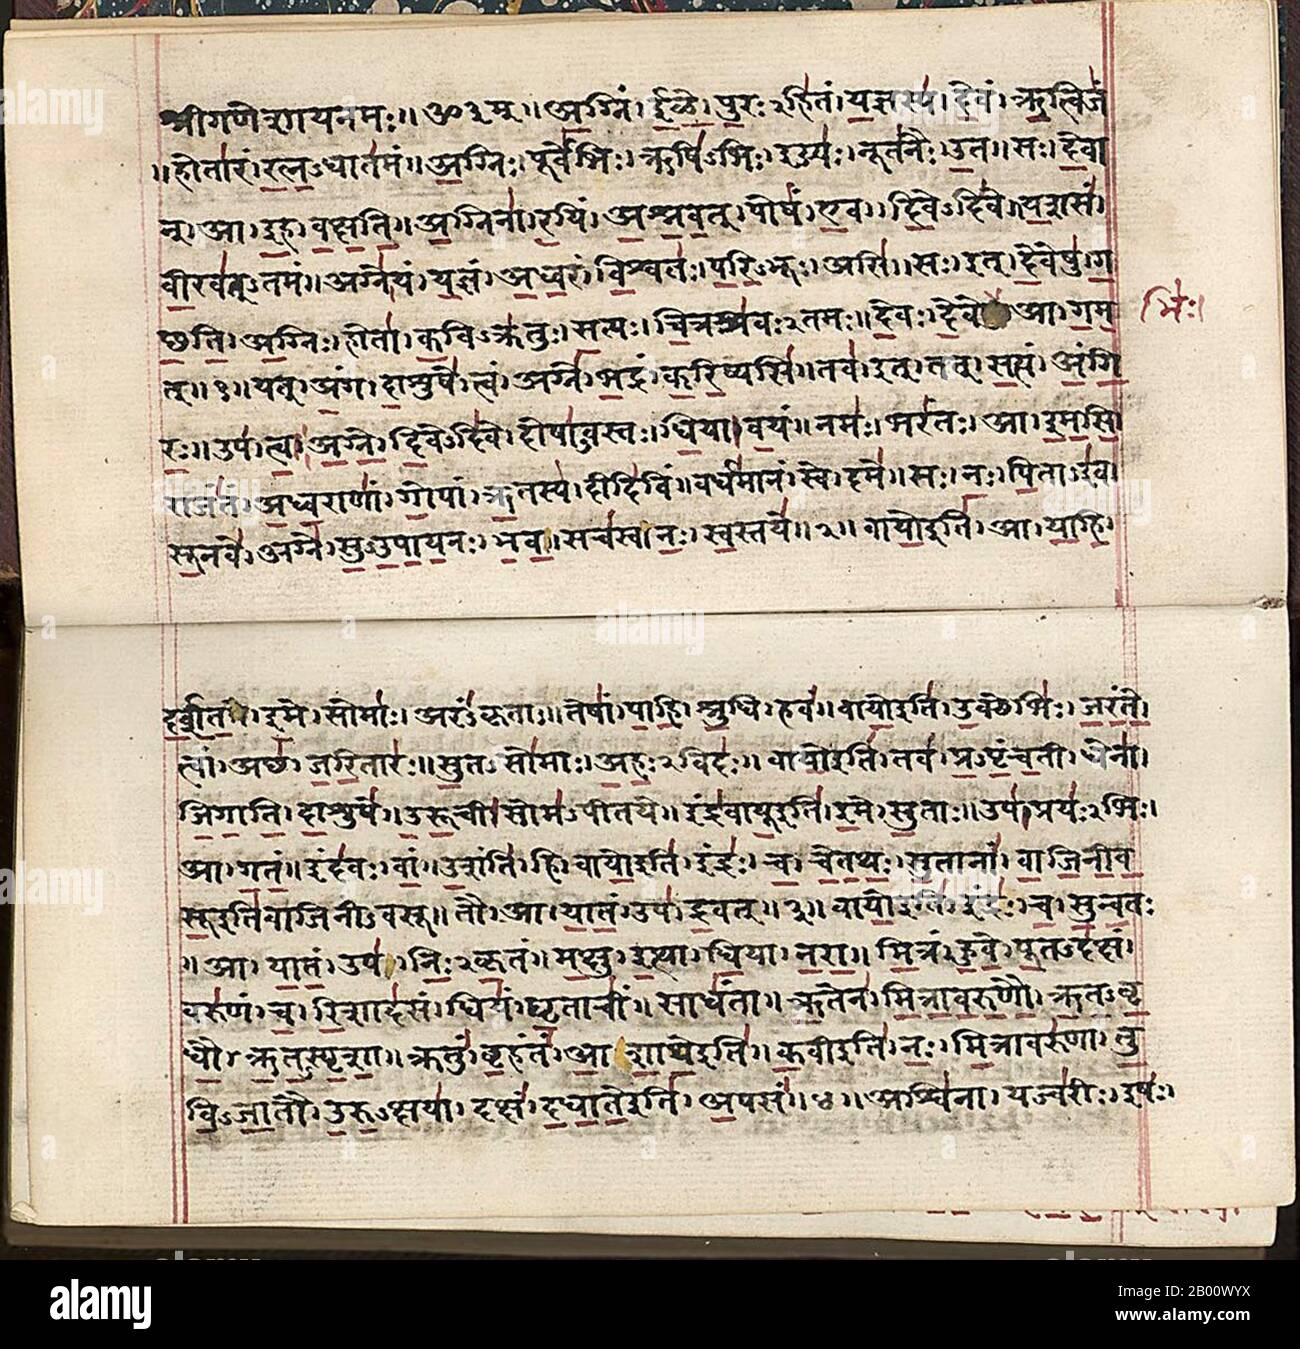 श्रीगणेशायनमः॥ॐ३म्॥अग्निं।ईळे।पुरः२हितं।यज्ञस्य।देवं।ऋत्विजं
॥होतारं।रत्नऽधातमं॥अग्निः।पूर्वेभिः।ऋषिऽभिः।ईड्यः।नूतनैः।उत॥सः।देवा
न्।आ।इह।वक्षति॥अग्निना।रयिं।अश्नवत्।पोषं।एव।दिवेऽदिवे॥यशसं।
वीरवत्ऽतमं॥अग्ने।यं।यज्ञं।अध्वरं।विश्वतः।परिऽभूः।असि॥सः।इत्।देवेषु।ग
छति।अग्निः।होता।कविऽक्रतुः।सत्यः।चित्रश्रवः२तमः॥देवः।देवे आ।गम
भिः।
त्॥१॥यत्।अंग।दाशुषे।त्वं।अग्ने।भद्रं।करिष्यसि॥तव।इत्।तत्।सत्यं।अंगि
रः॥उप।त्वा।अग्ने।दिवेऽदिवे।दोषाऽवस्तः।धिया।वयं॥नमः।भरंतः।आ।इमसि
राजंतं।अध्वराणां।गोपां।ऋतस्य।दीदिविं॥वर्धमानं।स्वे।दमे॥सः।नः।पिताऽइव
सूनवे।अग्ने।सुऽउपायनः।भव॥सचस्व।नः।स्वस्तये॥२॥वायोइति।आ।याहि।
दर्शत।इमे।सोमाः।अरंऽकृताः॥तेषां।पाहि।श्रुधि।हवं॥वायोइति।उक्थेभिः।जरंते।
त्वां।अछ।जरितारः॥सुतऽसोमाः।अहः२विदः॥वायोइति।तव।प्रऽपृंचती।धेना।
जिगाति।दाशुषे॥उरूची।सोमऽपीतये॥इंद्रवायूइति।इमे।सुताः॥उप।प्रयः२भिः।
आ।गतं॥इंदवः।वां॥उशंति।हि।वायोइति।इंद्रः।च।चेतथः।सुतानां।वाजिनीव
सूइतिवाजिनीऽवसू॥तौ।आ।यातं।उप।द्रवत्॥३॥वायोइति।इंद्रः।च।सुन्वतः
॥आ।यातं।उप।निः२कृतं॥मक्षु।इत्था।धिया।नरा॥मित्रं।हुवे।पूतऽदक्षं।
वरुणं।च।रिशादसं।धियं।घृताचीं॥साधंता॥ऋतेन।मित्रावरुणौ।ऋतऽवृ
धौ।ऋतऽस्पृशा॥क्रतुं।बृहंतं।आ शाथेइति॥कवीइति।नः।मित्रावरुणा।तु
विऽजातौ।उरुऽक्षया।दक्षं।दधातेइति।अपसं॥४॥अश्विना।यज्वरीः।इषः।